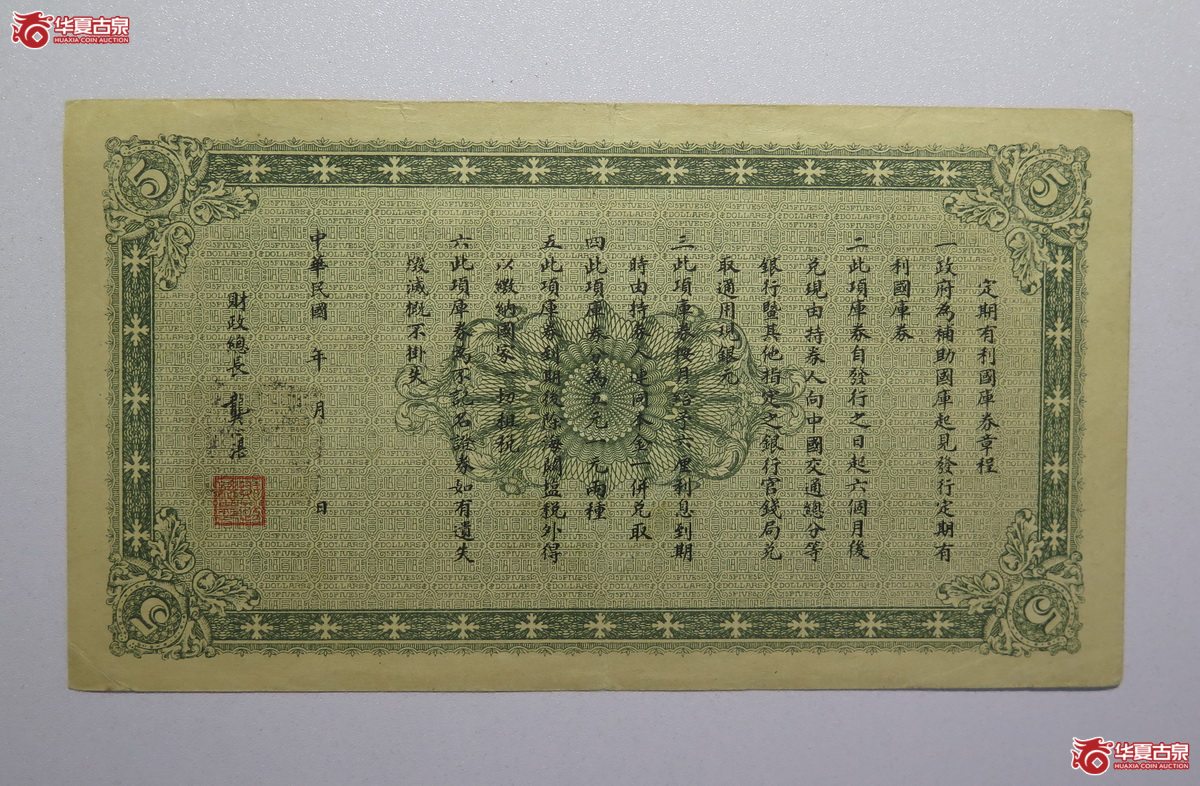 华夏古泉
HUAXIA COIN AUCTION
5
5
定期有利國庫券章程
一政府為補助國庫起見發行定期有
利國庫券
二此項庫券自發行之日起六個月後
兌現由持券人向中國交通總分等
銀行暨其他指定之銀行官錢局兌
取通用現銀元
三此項庫券按月給予六厘利息到期
時由持券人連同本金一併兌取
四此項庫券分為五元一元兩種
五此項庫券到期後除海關鹽稅外得
以繳納國家一切租稅
六此項庫券為不記名證券如有遺失
燬滅概不掛失
中華民國 年 月 日
財政總長 龔心湛
5
5
华夏古泉
HUAXIA COIN AUCTION